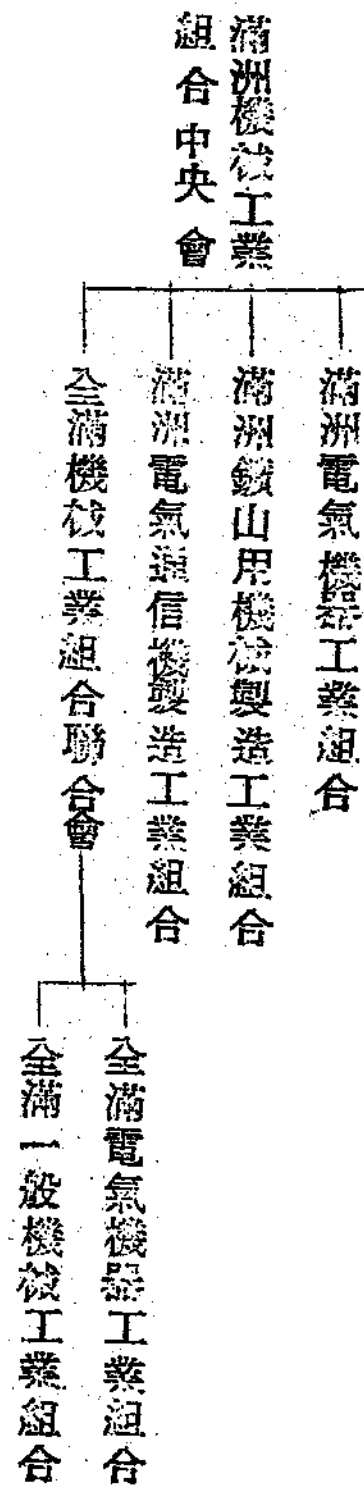 滿洲機械工業
組合中央會
滿洲電氣機器工業組合
滿洲鑛山用機械製造工業組合
滿洲電氣通信機製造工業組合
全滿機械工業組合聯合會
全滿電氣機器工業組合
全滿一般機械工業組合